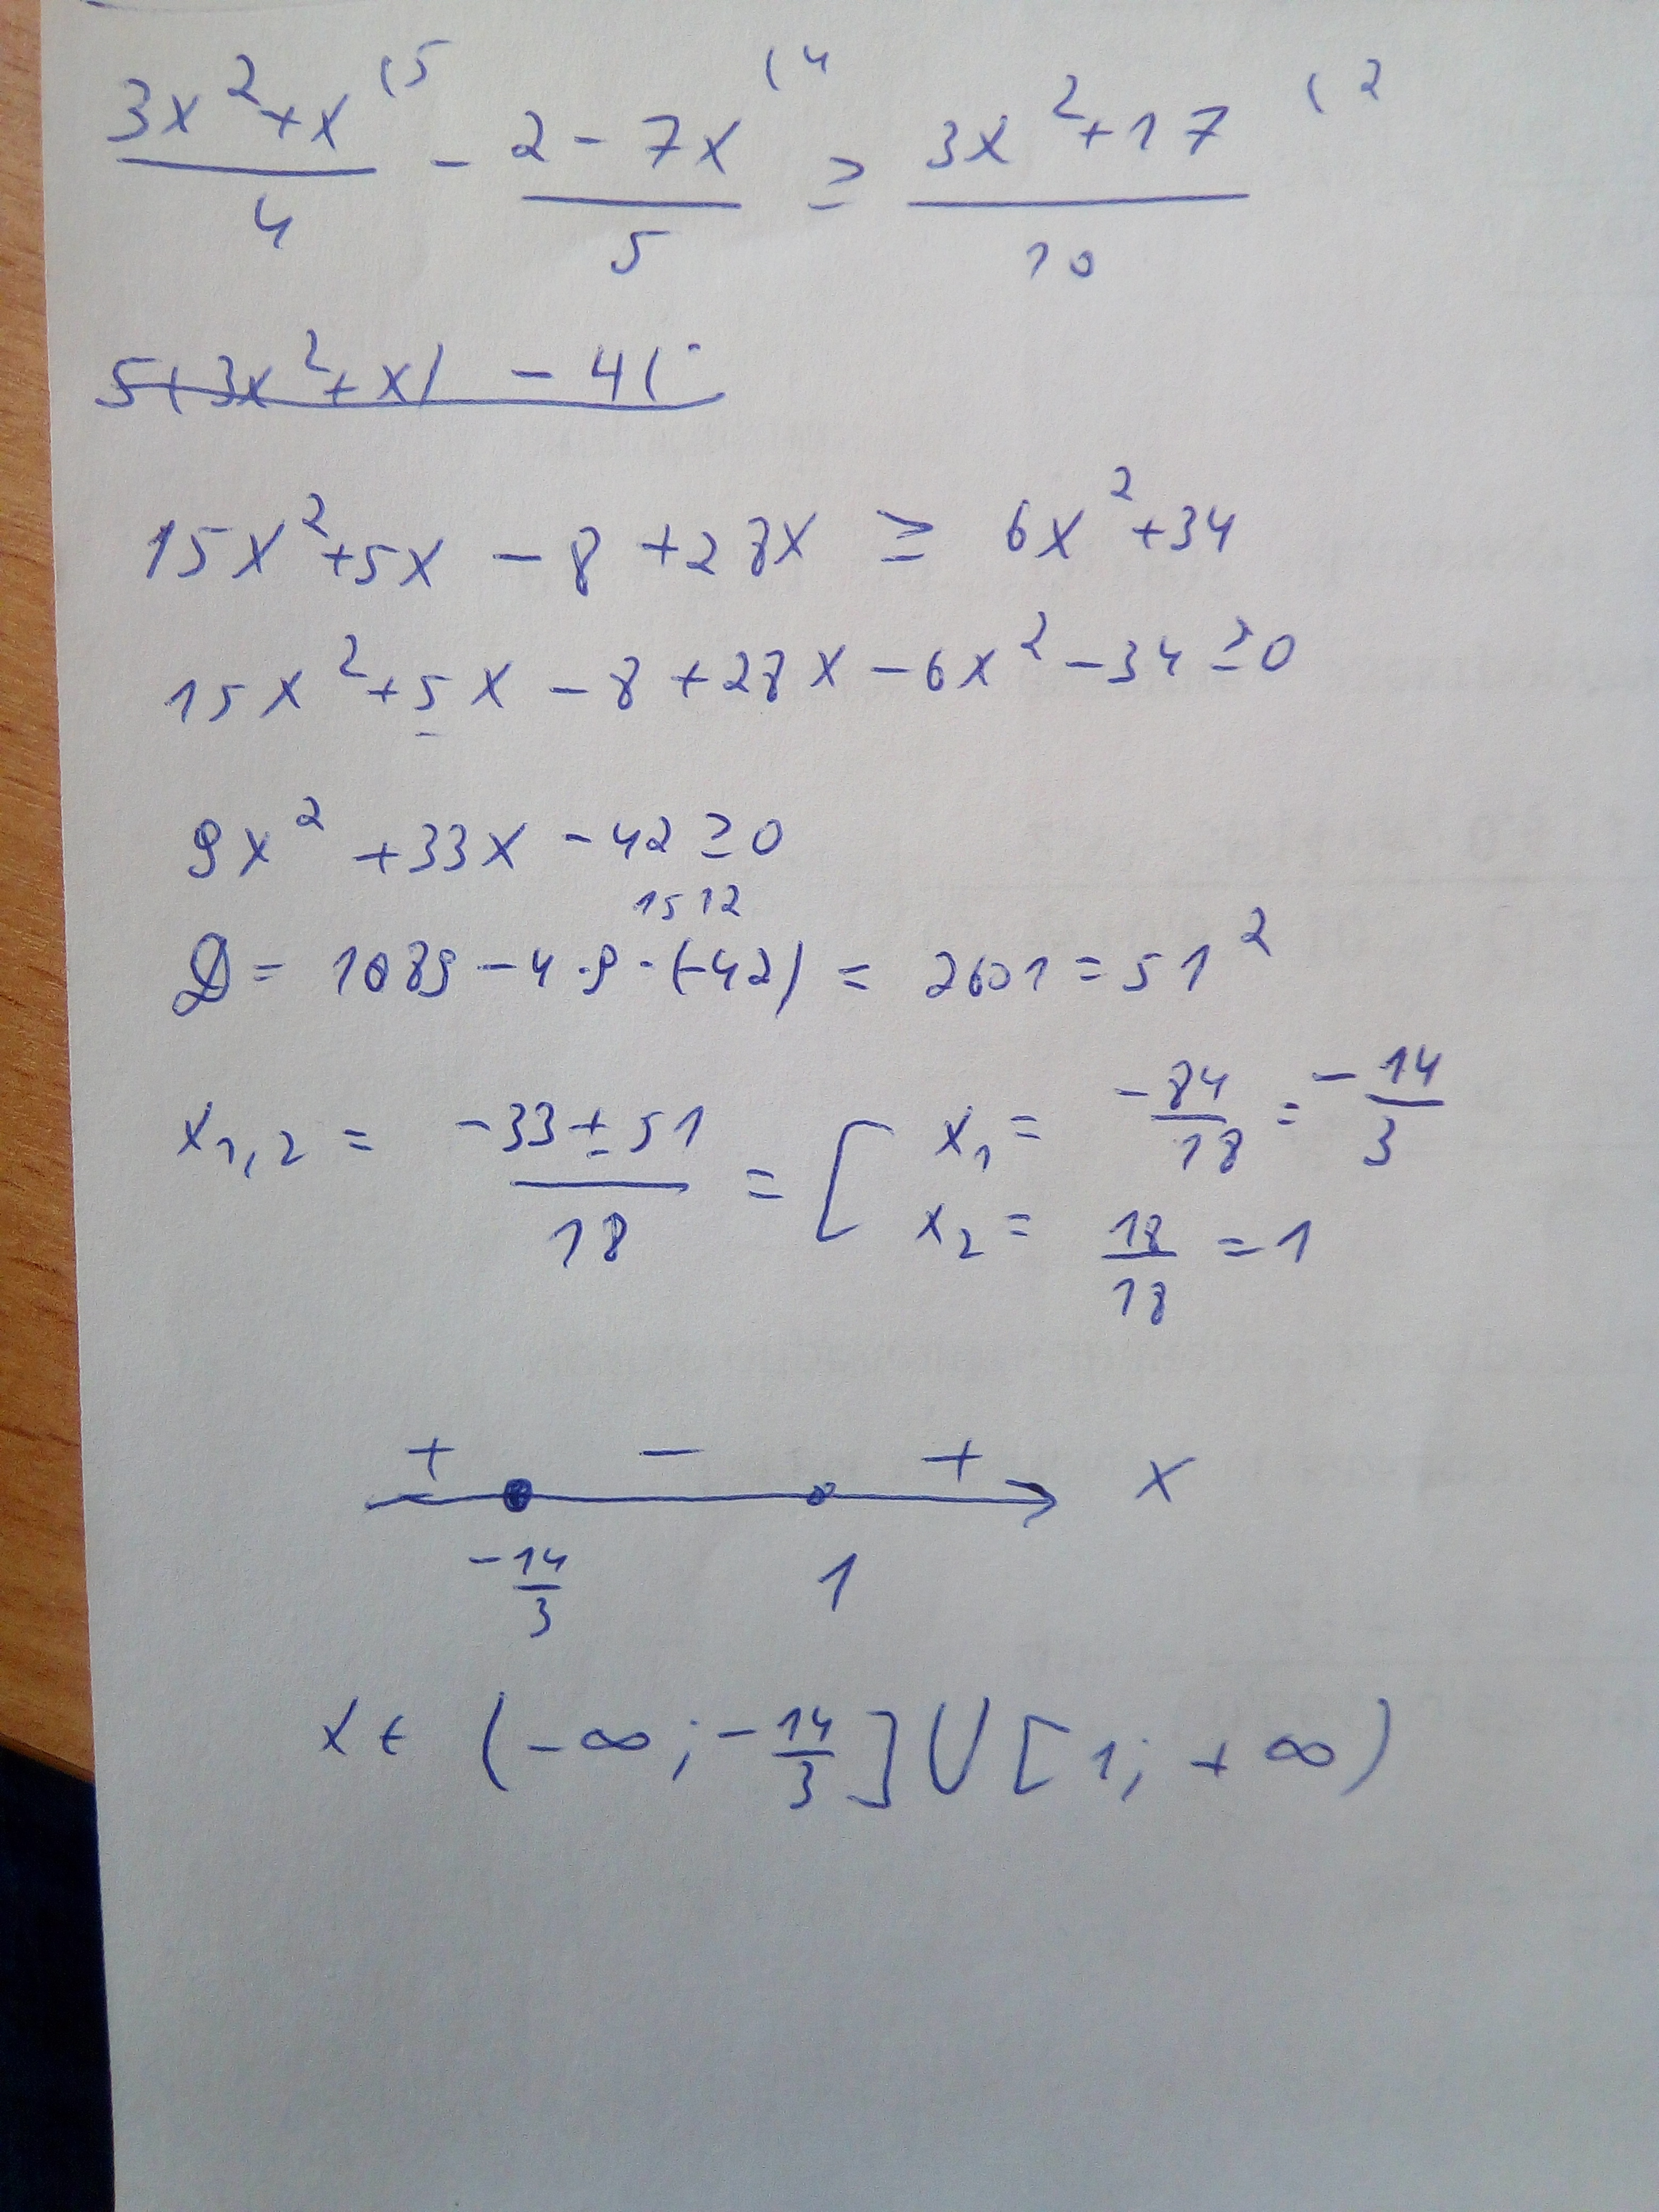 (3x²+x)/4 (5 - (2-7x)/5 (4 ≥ (3x²+17)/10 (2
5(3x²+x) - 4(
15x²+5x - 8 + 28x ≥ 6x²+34
15x²+5x - 8 + 28x - 6x² - 34 ≥ 0
9x² + 33x - 42 ≥ 0
1512
D = 1089 - 4·9·(-42) = 2601 = 51²
x₁,₂ = (-33±51)/18 = [ x₁ = -84/18 = -14/3
x₂ = 18/18 = 1
+ - + x
-14/3 1
x ∈ (-∞; -14/3] ∪ [1; +∞)